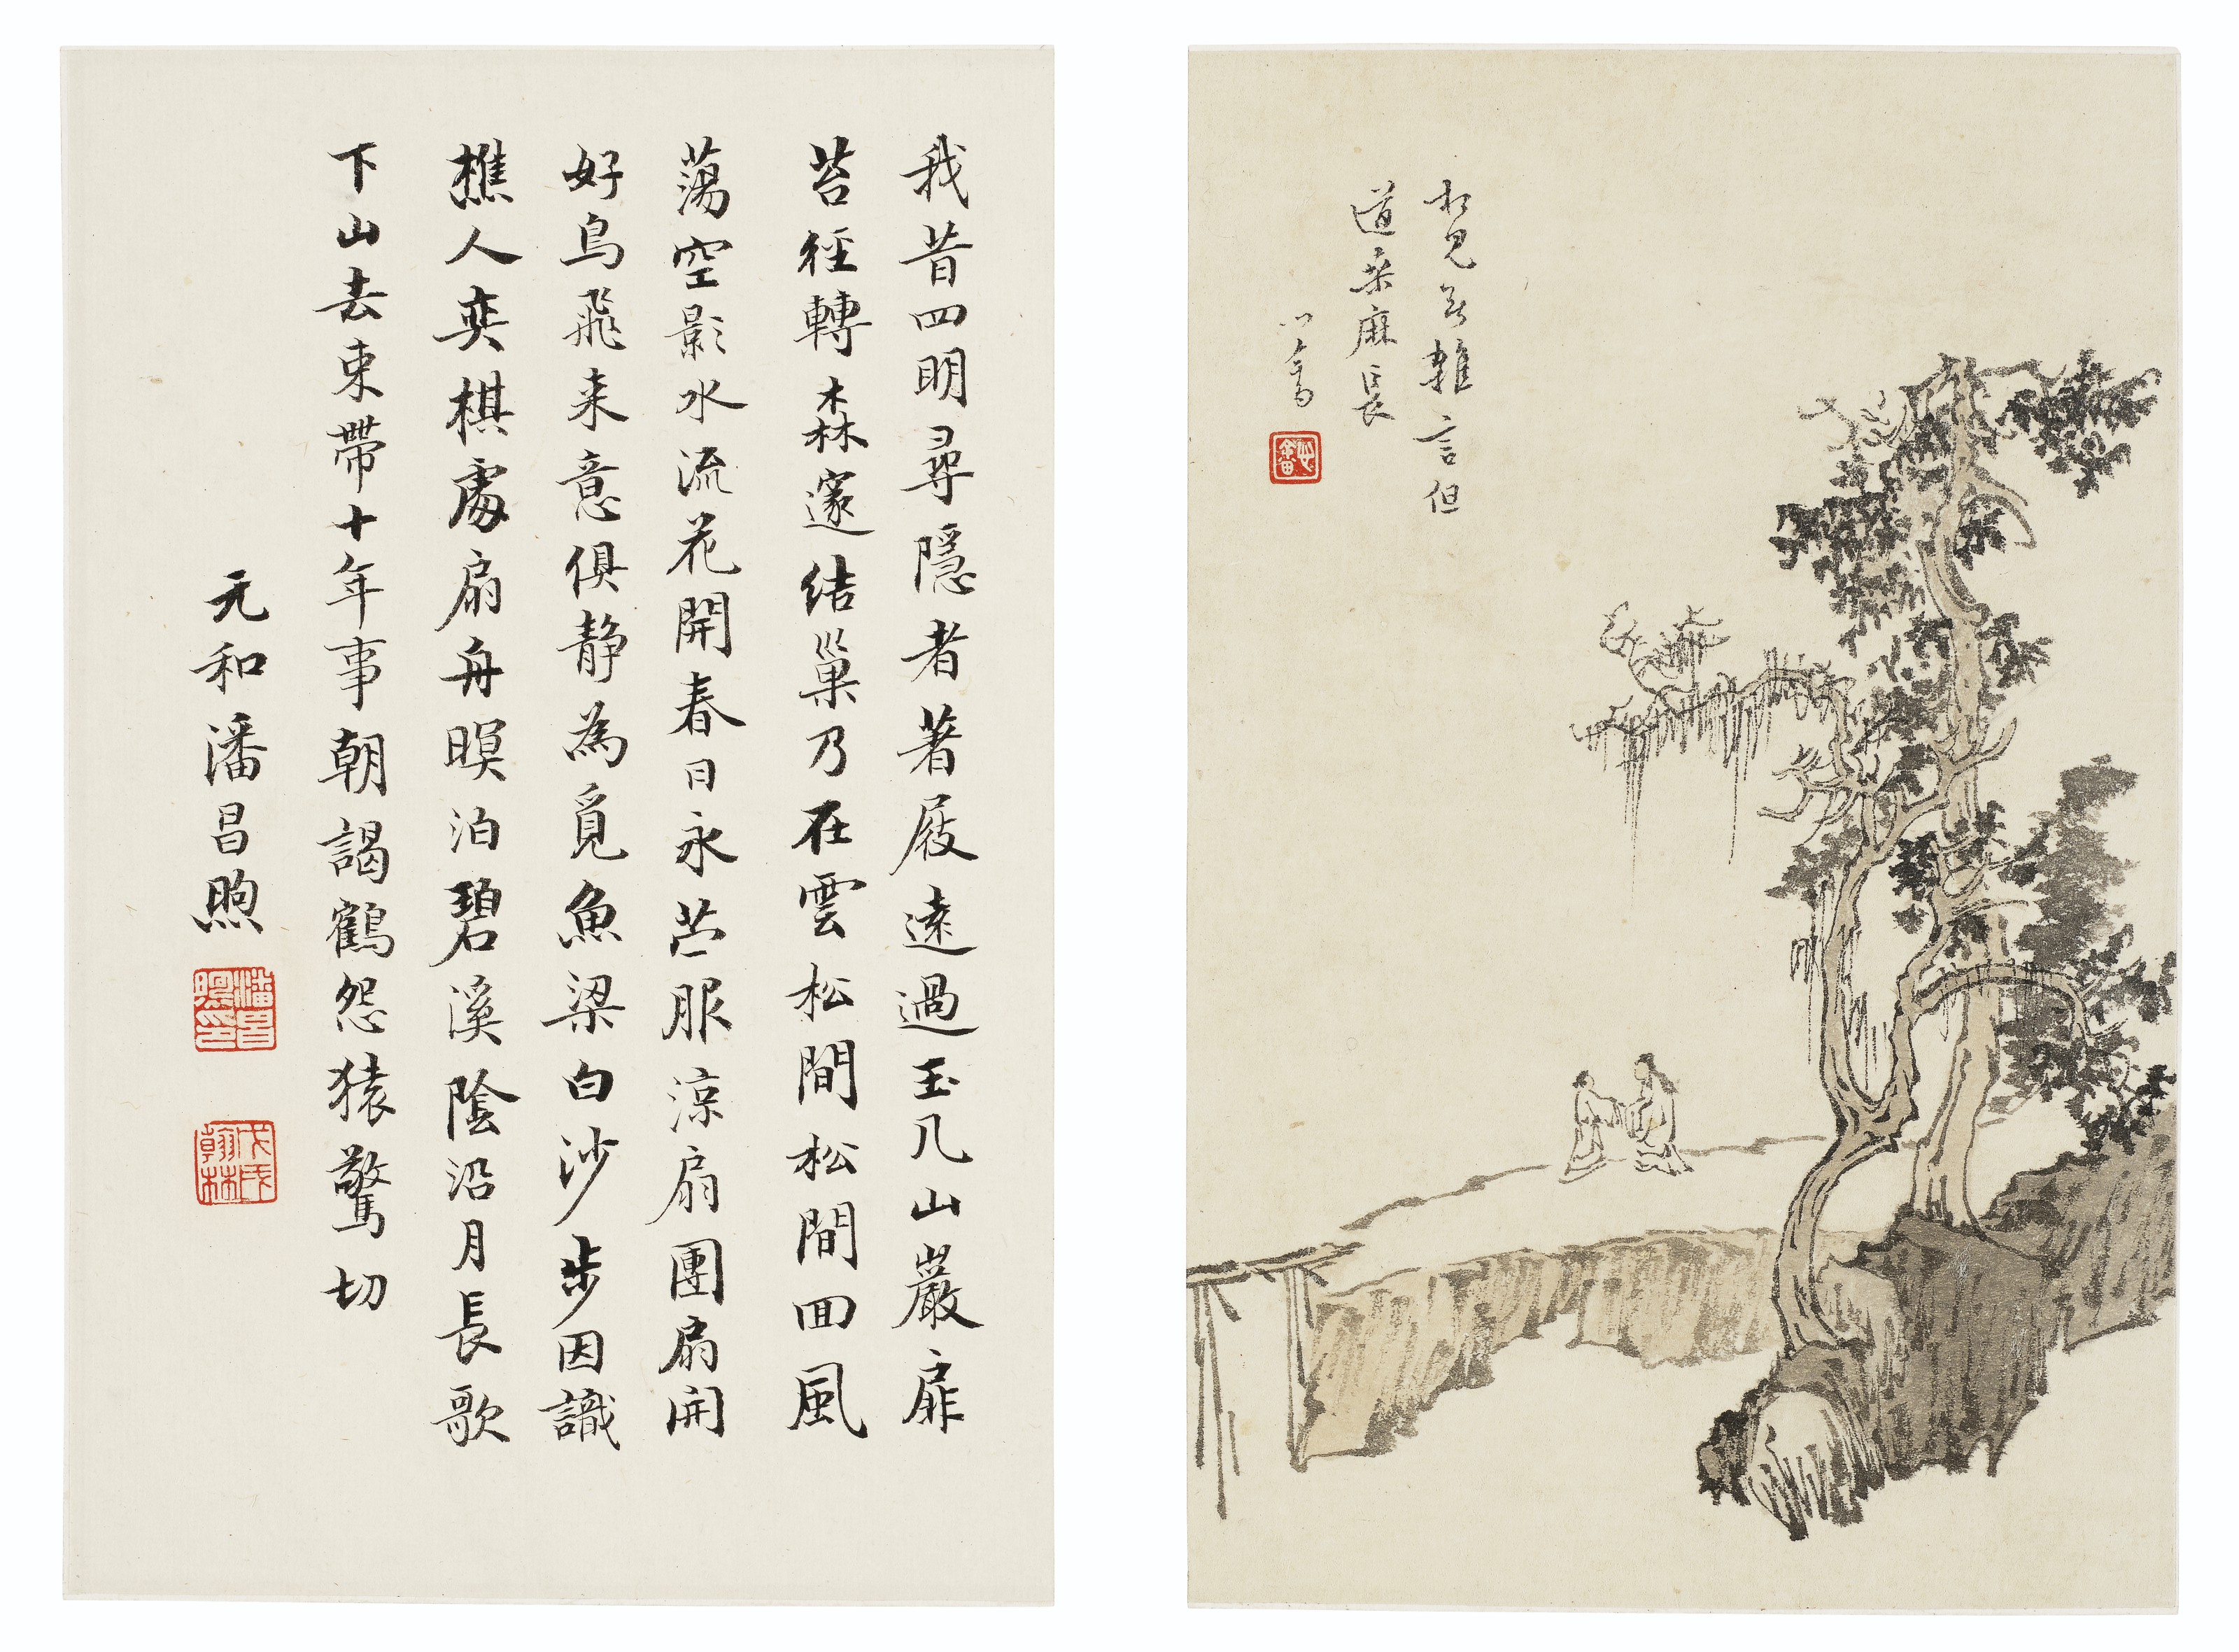 相見無雜言但
道桑麻長
心畬
心畬
我昔四明尋隱者著屐遠過玉几山巖扉
苔徑轉森邃結巢乃在雲松間松間囬風
蕩空影水流花開春日永芒服涼扇團扇開
好鳥飛来意俱静為覓魚梁白沙步因識
樵人奕棋處扁舟暝泊碧溪陰沿月長歌
下山去束帶十年事朝謁鶴怨猿驚切
元和潘昌煦
潘昌煦印
戊戌翰林